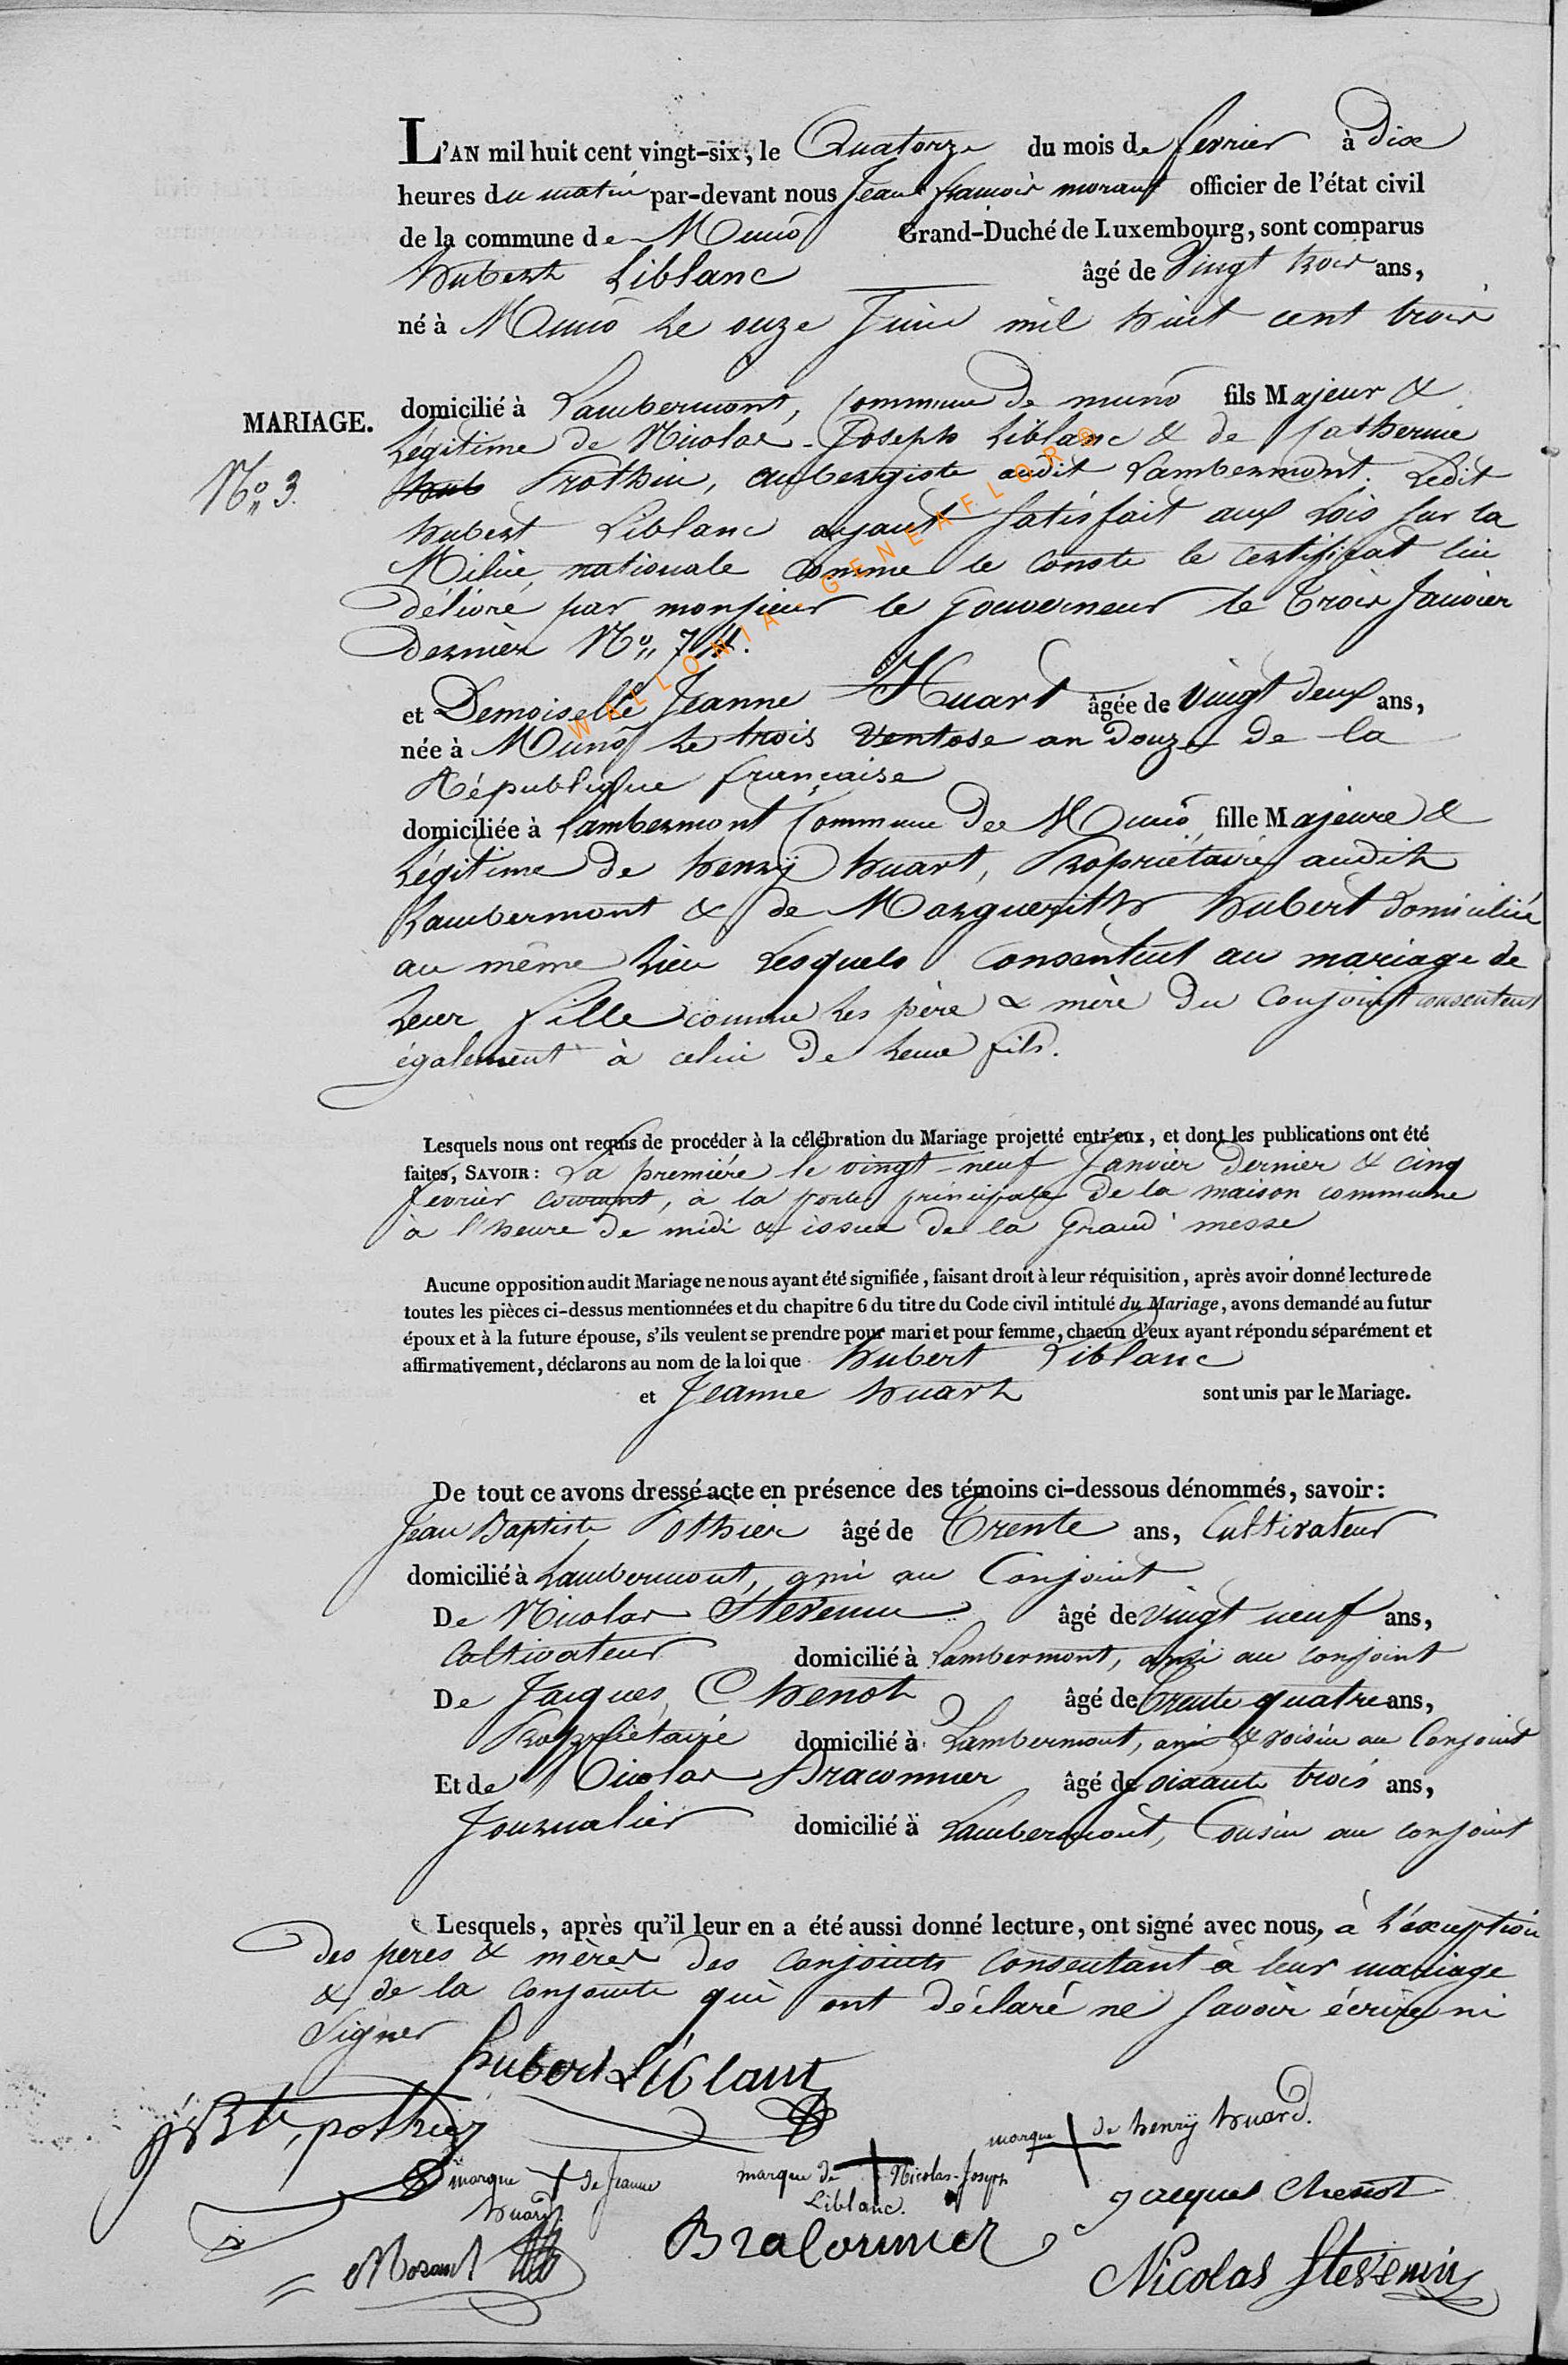 L'AN mil huit cent vingt-six, le Quatorze du mois de fevrier à Dix
heures du matin par-devant nous Jean françois morant officier de l'état civil
de la commune de Muno Grand-Duché de Luxembourg, sont comparus
hubert Liblanc âgé de Vingt trois ans,
né à Muno Le onze Juin mil huit cent trois
MARIAGE.
N° 3.
domicilié à Lambermont, commune de muno fils Majeur &
Légitime de Nicolas-Joseph Liblanc & de Catherine
hub Prothin, aubergiste audit Lambermont. Ledit
hubert Liblanc ayant satisfait aux Lois sur la
Milice nationale comme le conste le certificat lui
délivré par monsieur le Gouverneur le Trois Janvier
dernier N°
et Demoiselle Jeanne Huart âgée de Vingt deux ans,
née à Muno Le trois Ventose an Douze de la
République française
domiciliée à Lambermont Commune De Muno, fille Majeure &
Légitime de henrÿ huart, Propriétaire audit
Lambermont & de Margueritte hubert domiciliée
au même Lieu Lesquels consentent au mariage de
Leur fille comme Les père & mère du conjoint consentent
également à celui de Leur fils.
Lesquels nous ont requis de procéder à la célébration du Mariage projetté entr'eux, et dont les publications ont été
faites, SAVOIR : La première le vingt-neuf Janvier dernier & cinq
fevrier courant, à la porte principale de la maison commune
à l'heure de midi & issue de la Grand' messe
Aucune opposition audit Mariage ne nous ayant été signifiée, faisant droit à leur réquisition, après avoir donné lecture de
toutes les pièces ci-dessus mentionnées et du chapitre 6 du titre du Code civil intitulé du Mariage, avons demandé au futur
époux et à la future épouse, s'ils veulent se prendre pour mari et pour femme, chacun d'eux ayant répondu séparément et
affirmativement, déclarons au nom de la loi que hubert Liblanc
et Jeanne huart sont unis par le Mariage.
De tout ce avons dressé acte en présence des témoins ci-dessous dénommés, savoir :
Jean Baptiste Pothier âgé de Trente ans, Cultivateur
domicilié à Lambermont, ami au Conjoint
De Nicolas Stevenin âgé de vingt neuf ans,
Cultivateur domicilié à Lambermont, ami au conjoint
De Jacques Chenot âgé de Trente quatre ans,
Propriétaire domicilié à Lambermont, ami & voisin au Conjoint
Et de Nicolas Braconnier âgé de soixante trois ans,
Journalier domicilié à Lambermont, Cousin au conjoint
Lesquels, après qu'il leur en a été aussi donné lecture, ont signé avec nous, à L'exception
des peres & mères des conjoints consentant à leur mariage
& de la conjointe qui ont déclaré ne savoir écrire ni
signer
hubert Liblanc
jBte, pothier
marque de henrÿ huard.
marque de Jeanne
huard.
marque de Nicolas-Joseph
Liblanc.
Jacques Chenot
Morant
Braconnier
Nicolas Stevenin
WALLONIA-GENEAFLOR®